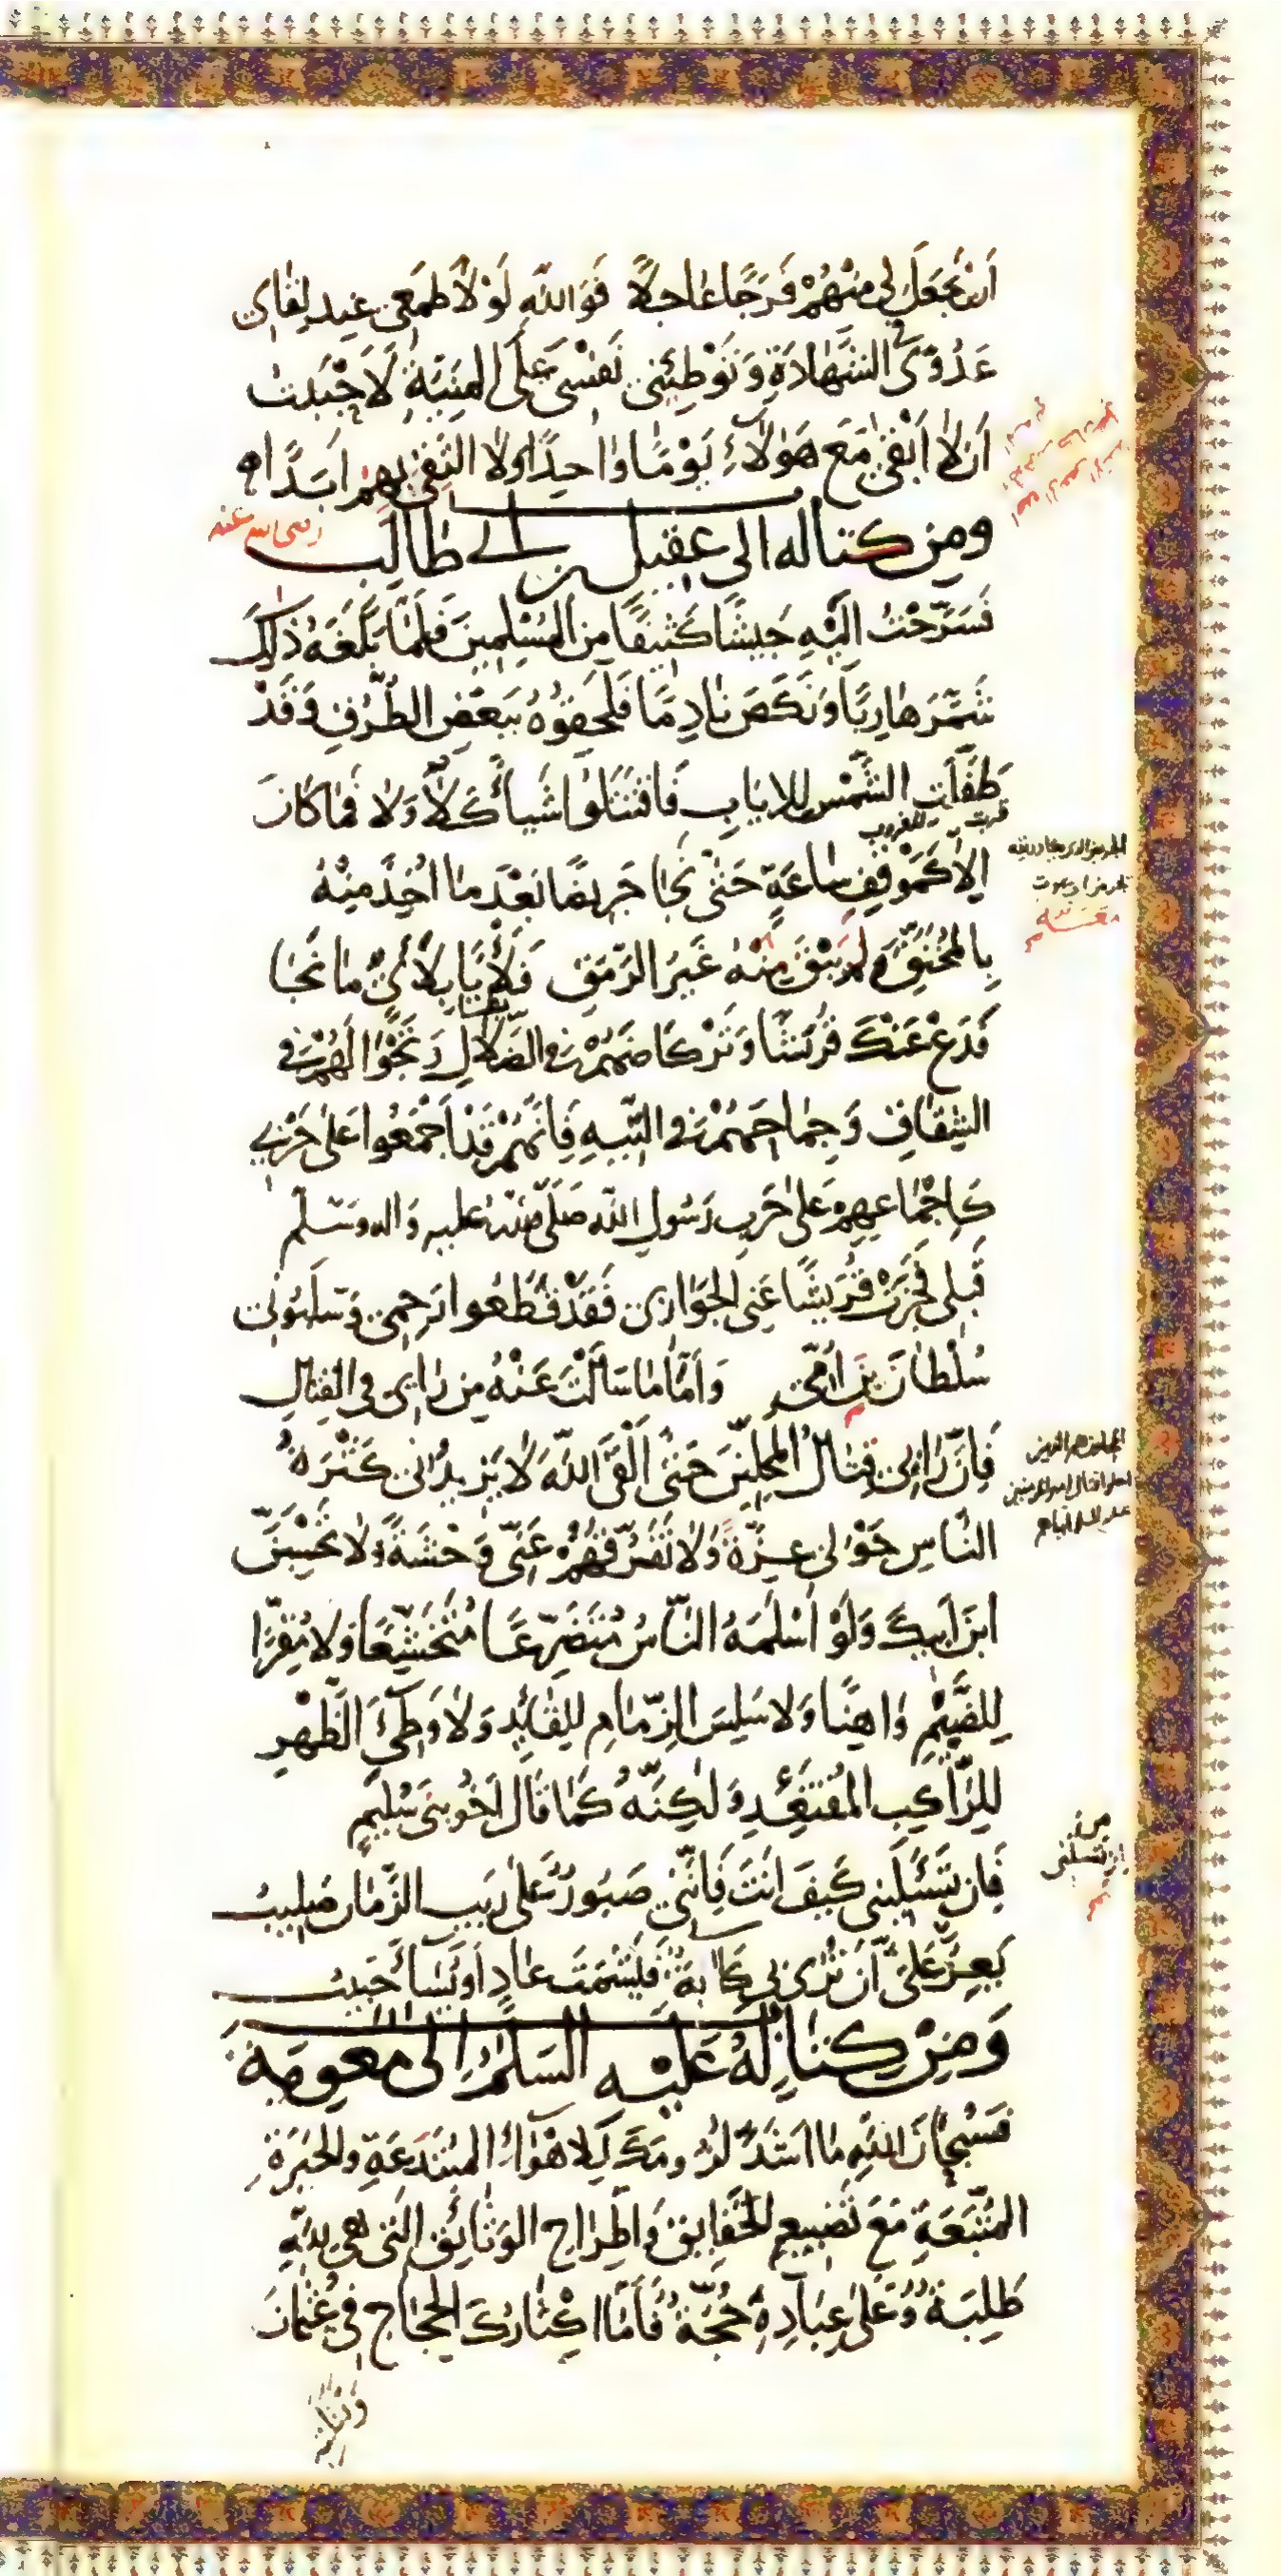 اَنْ يَجْعَلَ لِي مِنْهُمْ فَرَجًا عَاجِلًا فَوَاللّهِ لَوْلَا طَمَعِي عِنْدَ لِقَائِي
عَدُوِّي فِي الشَّهَادَةِ وَتَوْطِيْنِي نَفْسِي عَلَى الْمَنِيَّةِ لَاَحْبَبْتُ
اَنْ لَا اَبْقَى مَعَ هَؤُلَاءِ يَوْمًا وَاحِدًا وَلَا اَلْتَقِيَ بِهِمْ اَبَدًا
وَمِنْ كِتَابٍ لَهُ اِلَى عَقِيْلِ بْنِ اَبِي طَالِبٍ رضى الله عنه
فَسَرَّحْتُ اِلَيْهِ جَيْشًا كَثِيْفًا مِنَ الْمُسْلِمِيْنَ فَلَمَّا بَلَغَهُ ذَلِكَ
شَمَّرَ هَارِبًا وَنَكَصَ نَادِمًا فَلَحِقُوهُ بِبَعْضِ الطَّرِيْقِ وَقَدْ
طَفَّلَتِ الشَّمْسُ لِلْاِيَابِ فَاقْتَتَلُوا شَيْأً كَلَا وَلَا فَمَا كَانَ
قربت للغروب
اِلَّا كَمَوْقِفِ سَاعَةٍ حَتَّى نَجَا جَرِيْضًا بَعْدَ مَا اُخِذَ مِنْهُ
بِالْمُخَنَّقِ وَلَمْ يَبْقَ مِنْهُ غَيْرُ الرَّمَقِ فَلَأْيًا بِلَأْيٍ مَا نَجَا
فَدَعْ عَنْكَ قُرَيْشًا وَتَرْكَاضَهُمْ فِي الضَّلَالِ وَتَجْوَالَهُمْ فِي
الشِّقَاقِ وَجِمَاحَهُمْ فِي التِّيْهِ فَاِنَّهُمْ قَدْ اَجْمَعُوا عَلَى حَرْبِي
كَاِجْمَاعِهِمْ عَلَى حَرْبِ رَسُولِ اللّهِ صَلَّى اللّه عليه وَاله وَسَلَّم
قَبْلِي فَجَزَتْ قُرَيْشًا عَنِّي الْجَوَازِي فَقَدْ قَطَعُوا رَحِمِي وَسَلَبُونِي
سُلْطَانَ ابْنِ اُمِّي وَاَمَّا مَا سَأَلْتَ عَنْهُ مِنْ رَأْيِي فِي الْقِتَالِ
فَاِنَّ رَأْيِي قِتَالُ الْمُحِلِّيْنَ حَتَّى اَلْقَى اللّهَ لَا يَزِيْدُنِي كَثْرَةُ
النَّاسِ حَوْلِي عِزَّةً وَلَا تَفَرُّقُهُمْ عَنِّي وَحْشَةً وَلَا تَحْسَبَنَّ
ابْنَ اَبِيْكَ وَلَوْ اَسْلَمَهُ النَّاسُ مُتَضَرِّعًا مُتَخَشِّعًا وَلَا مُقِرًّا
لِلضَّيْمِ وَاهِنًا وَلَا سَلِسَ الزِّمَامِ لِلْقَائِدِ وَلَا وَطِئَ الظَّهْرِ
لِلرَّاكِبِ الْمُقْتَعِدِ وَلَكِنَّهُ كَمَا قَالَ اَخُو بَنِي سُلَيْمٍ
فَاِنْ تَسْئَلِيْنِي كَيْفَ اَنْتَ فَاِنَّنِي صَبُورٌ عَلَى رَيْبِ الزَّمَانِ صَلِيْبُ
يَعِزُّ عَلَيَّ اَنْ تُرَى بِي كَابَةٌ فَيَشْمَتَ عَادٍ اَوْ يُسَاءَ حَبِيْبُ
وَمِنْ كِتَابٍ لَهُ عَلَيْهِ السَّلَامُ اِلَى مُعوِيَة
فَسُبْحَانَ اللّهِ مَا اَشَدَّ لُزُومَكَ لِلْاَهْوَاءِ الْمُبْتَدَعَةِ وَالْحَيْرَةِ
الْمُتَّبَعَةِ مَعَ تَضْيِيْعِ الْحَقَايِقِ وَاطِّرَاحِ الْوَثَائِقِ الَّتِي هِيَ لِلّهِ
طَلِبَةٌ وَعَلَى عِبَادِهِ حُجَّةٌ فَاَمَّا اِكْثَارُكَ الْحِجَاجَ فِي عُثْمَانَ